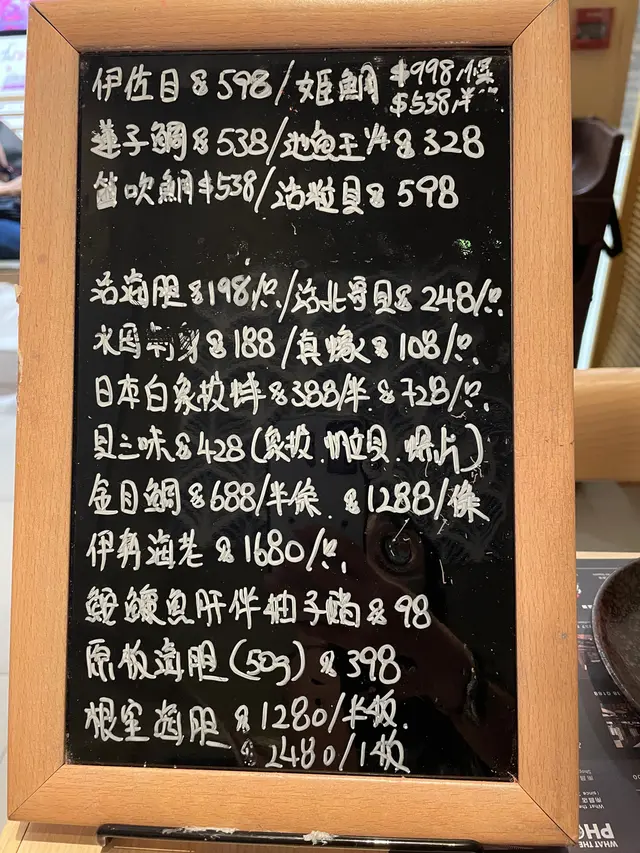 伊佐目 $598/姫鯛 $998/條
$538/半
蓮子鯛 $538/池魚王 1/4 $328
笛吹鯛 $538/活粒貝 $598
活海胆 $198/只/活北寄貝 $248/只
$188/真蠔 $108/只
日本白象拔蚌 $388/半 $728/只
貝三味 $428(象拔.帆立貝.螺片)
金目鯛 $688/半條. $1288/條
伊勢海老 $1680/只
鮟鱇魚肝伴柚子醋 $98
原板海胆(50g) $398
根室海胆 $1280/半板.
$2480/1板
WHAT THE